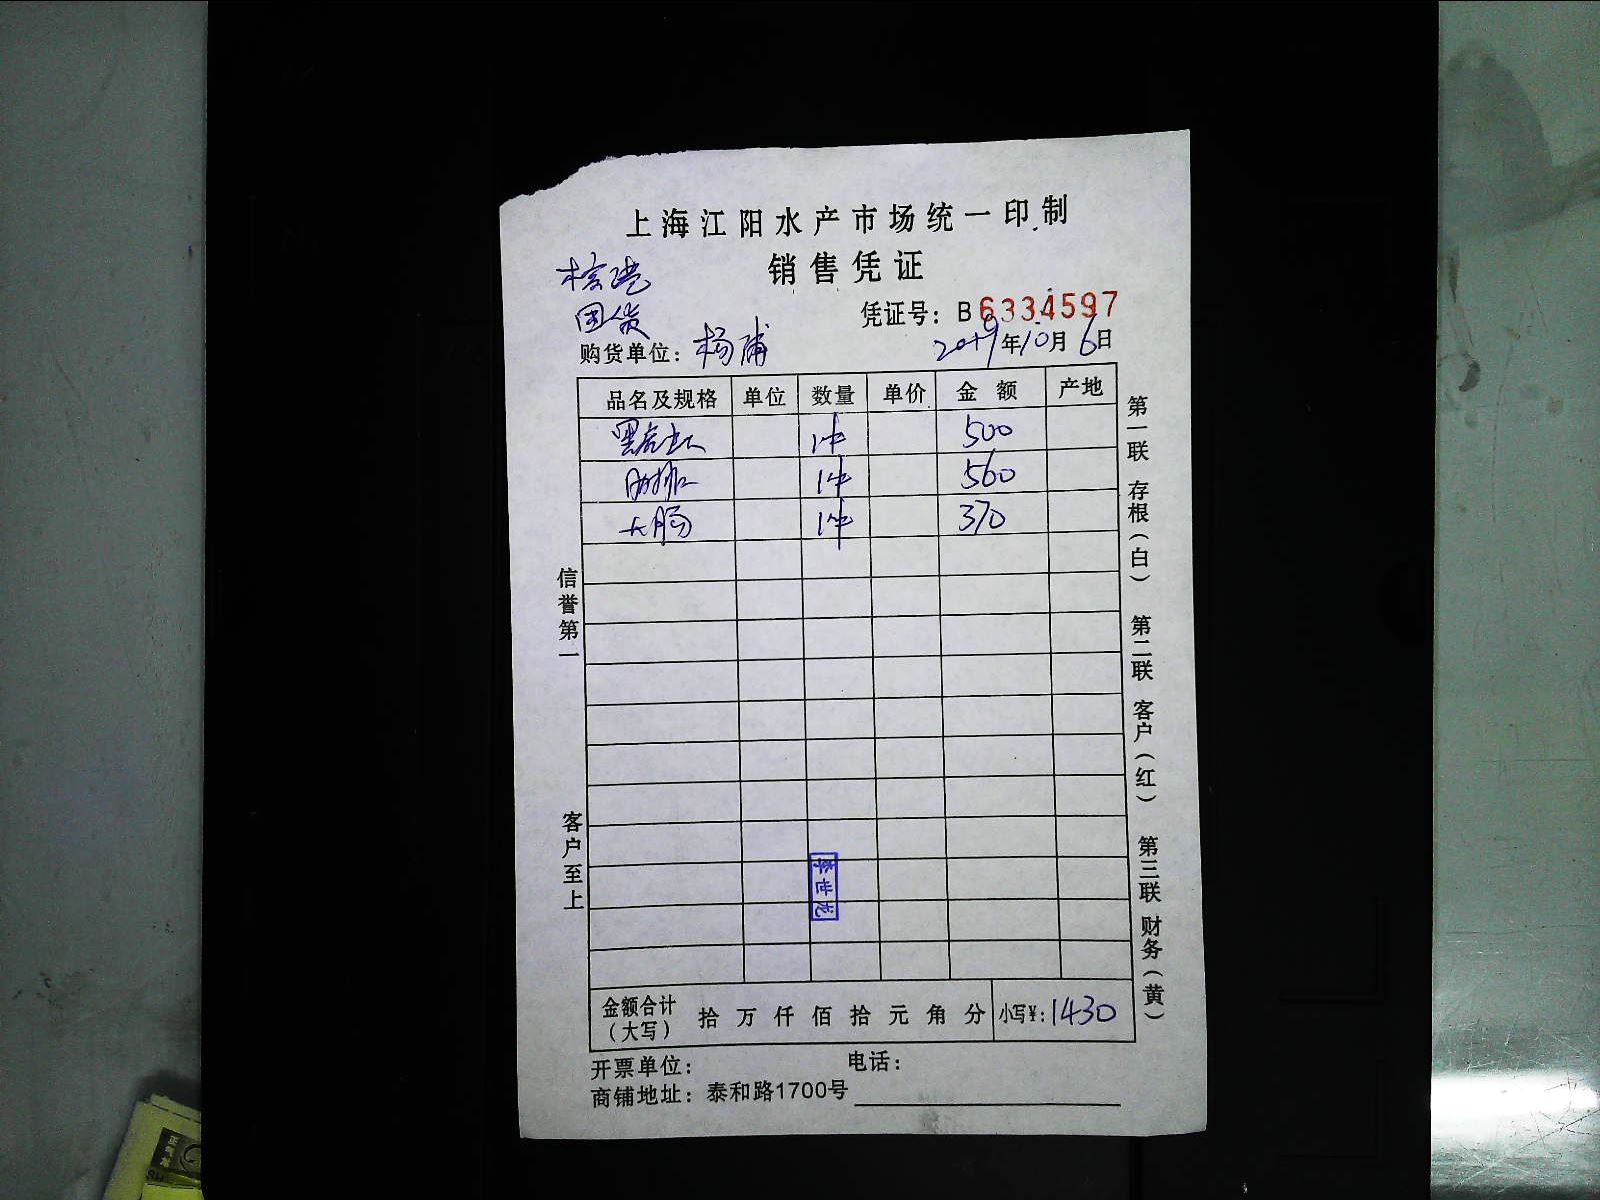 上海江阳水产市场统一印制
销售凭证
凭证号：B6334597
购货单位：杨浦
2019年10月6日
品名及规格 单位 数量 单价 金额 产地
黑虎虾 1件 500
肋排 1件 560
大肠 1件 370
信誉第一
客户至上
第一联 存根（白） 第二联 客户（红） 第三联 财务（黄）
李世龙
金额合计（大写） 拾万仟佰拾元角分 小写¥：1430
开票单位： 电话：
商铺地址：泰和路1700号